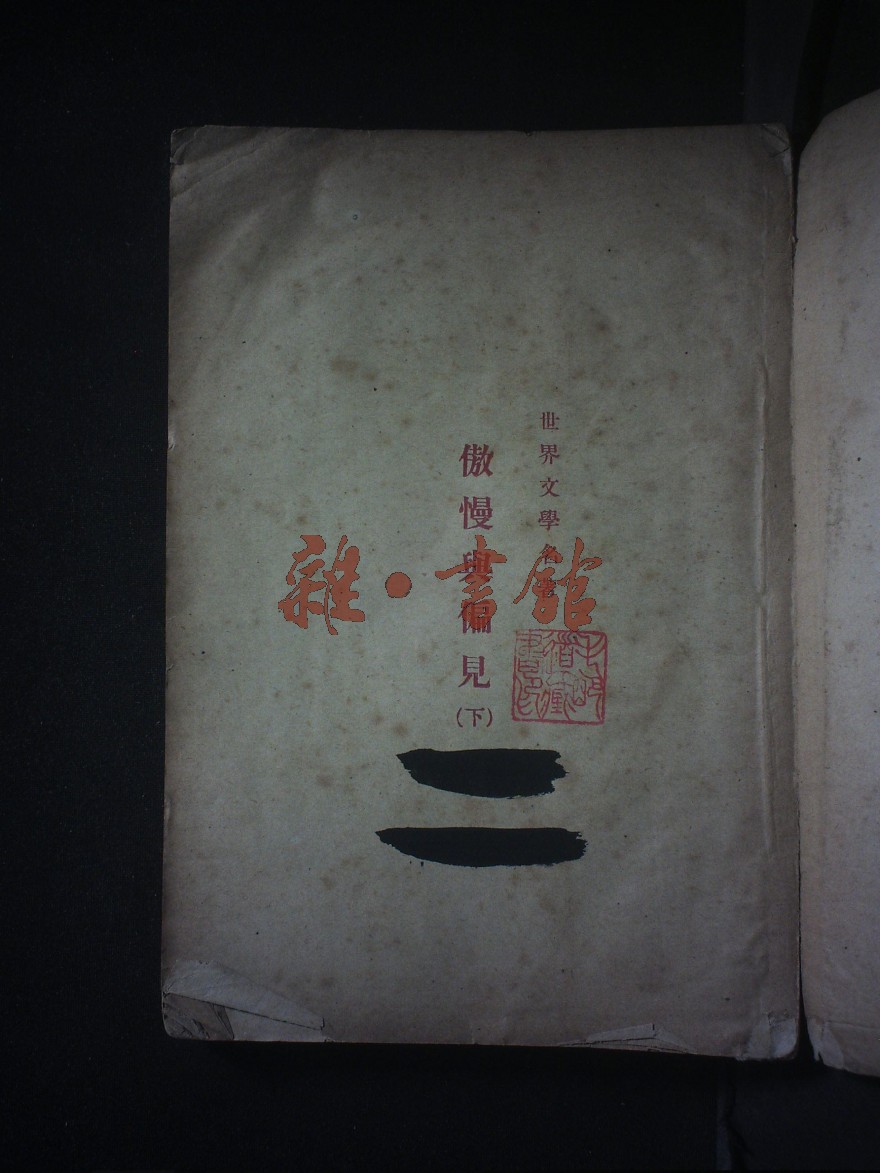 世界文學名著
傲慢與偏見
(下)
雜·書館